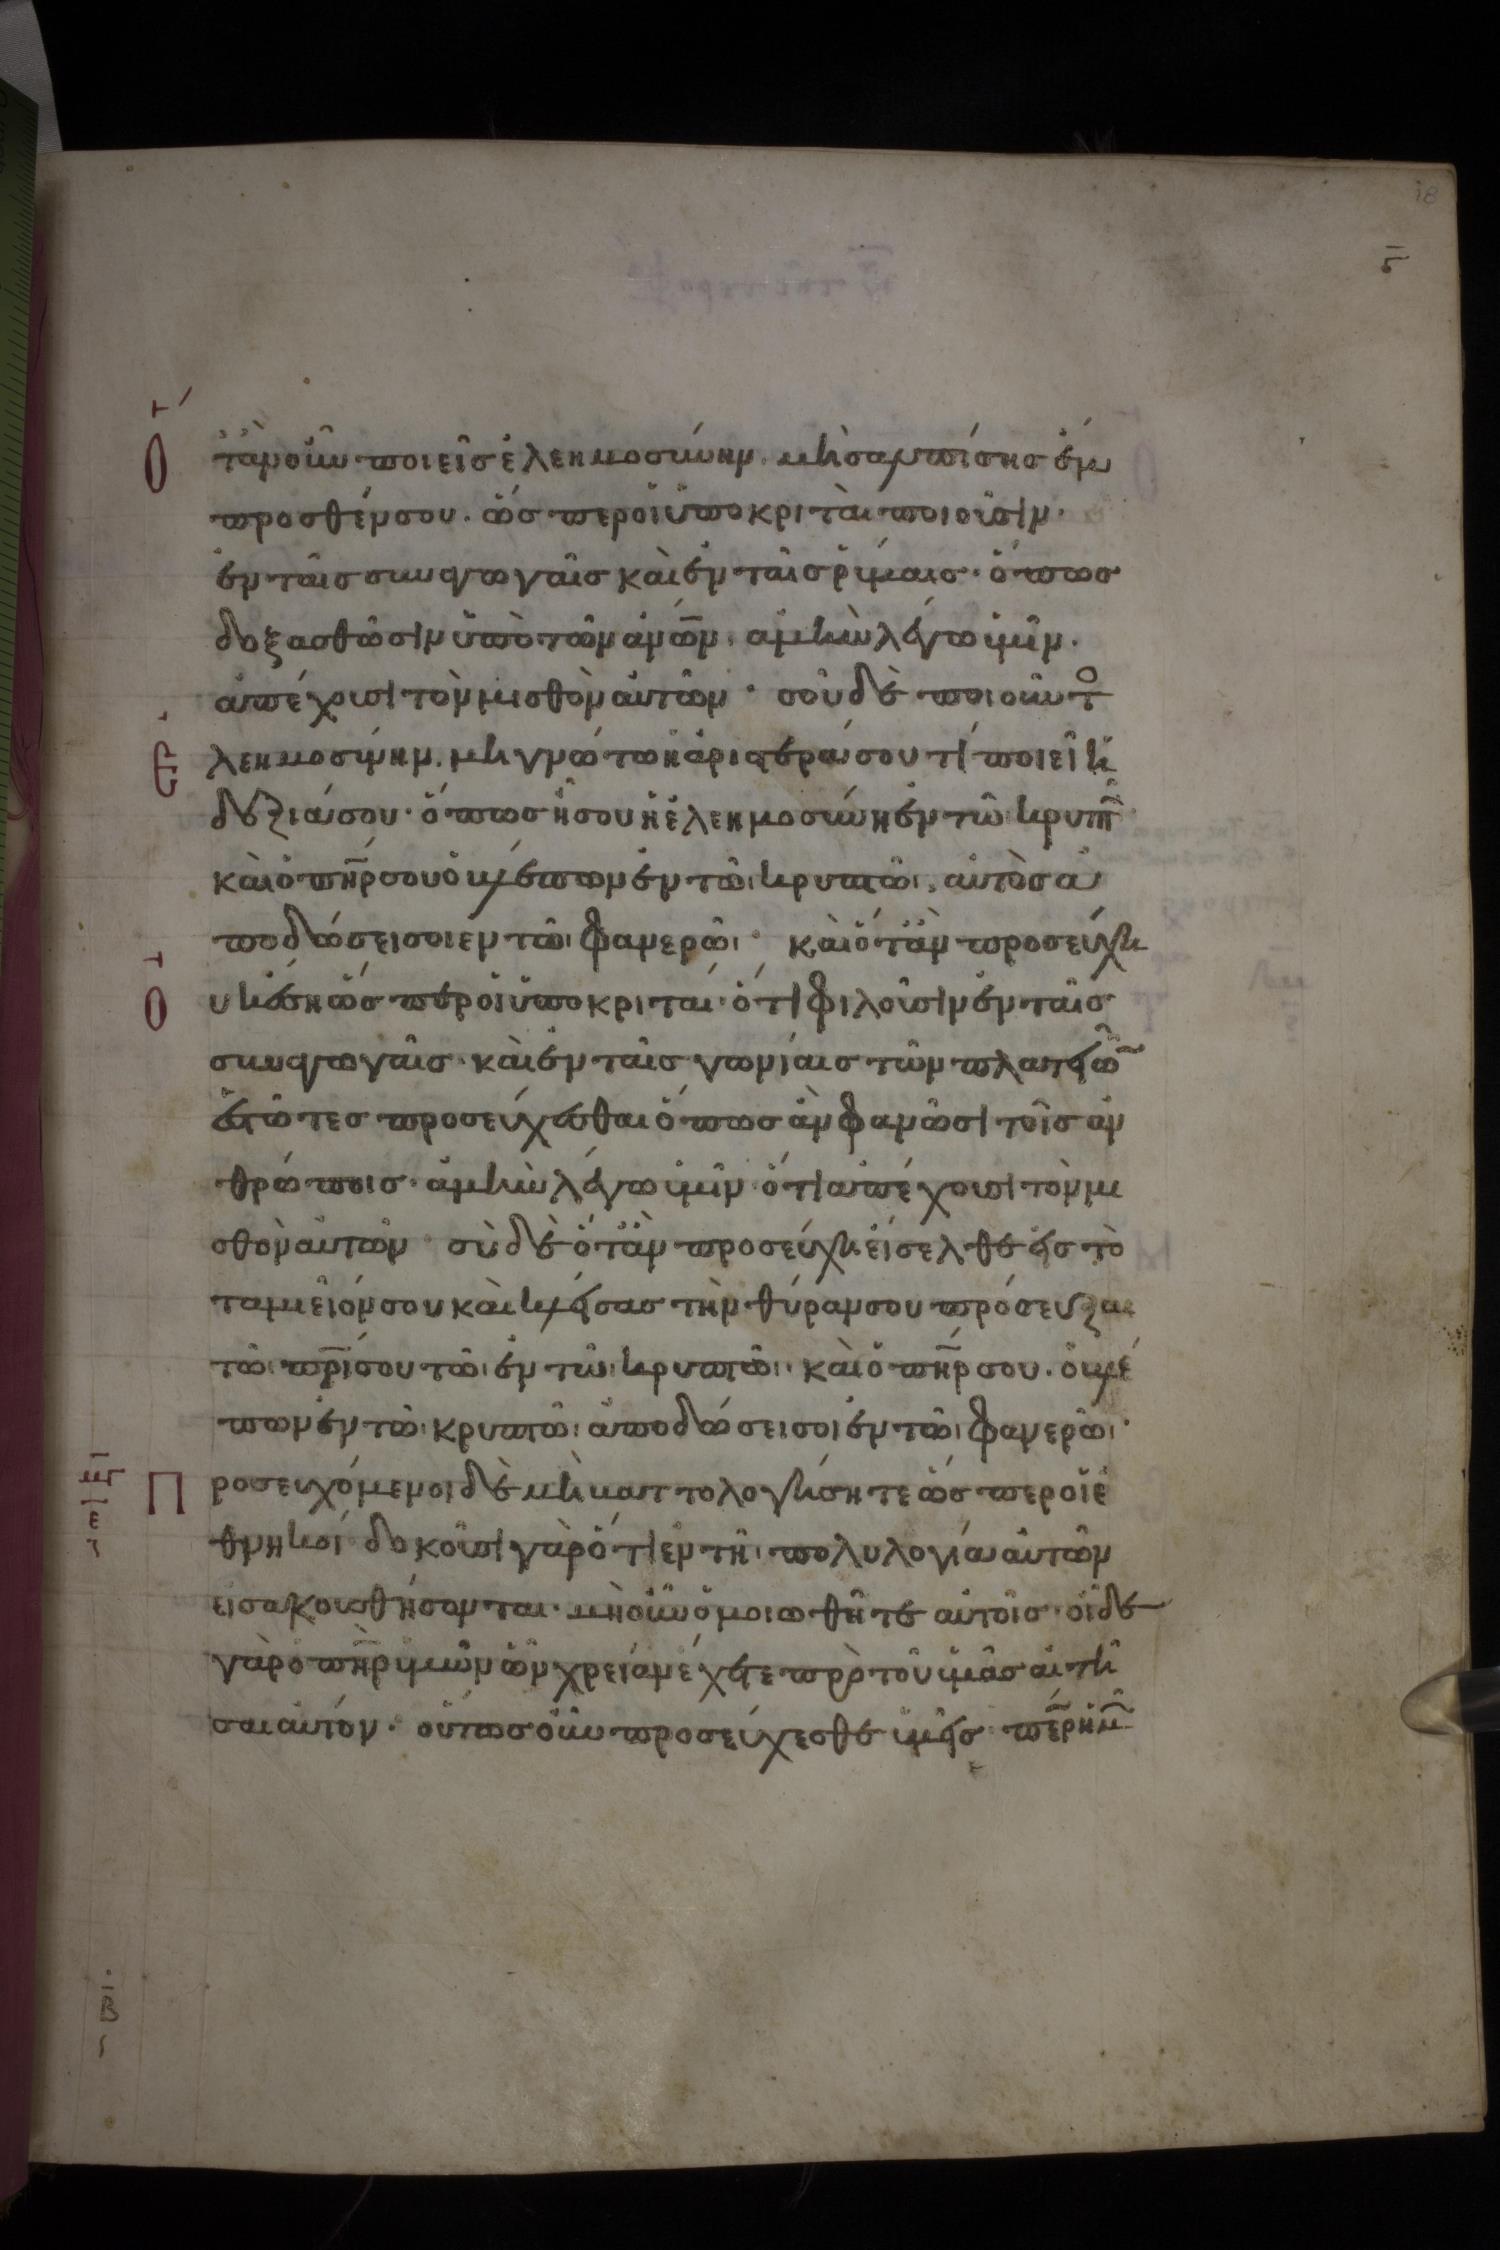 18
ς̅
Ὅταν οὖν ποιεῖσ ἐλεημοσύνην. μὴ σαλπίσησ ἔμ
προσθέν σου. ὥσπερ οἱ ὑποκριταὶ ποιοῦσιν.
ἐν ταῖσ συναγωγαῖσ καὶ ἐν ταῖσ ῥύμαισ. ὅπωσ
δοξασθῶσιν ὑπὸ τῶν ἀνω̅ν. ἀμὴν λέγω ὑμῖν.
ἀπέχουσι τὸν μισθὸν αὐτῶν. σοῦ δὲ ποιοῦντο
Ἐλεημοσύνην. μὴ γνώτω ἡ ἀριστερά σου τί ποιεῖ ἡ
δεξιά σου. ὅπωσ ἦ σου ἡ ἐλεημοσύνη ἐν τῶ κρυπτῶ
καὶ ὁ πη̅ρ σου ὁ βλέπων ἐν τῶι κρυπτῶι. αὐτὸσ ἀ
ποδώσει σοι ἐν τῶι φανερῶι. καὶ ὅταν προσεύχη
Οὐκ ἔση ὥσπερ οἱ ὑποκριταί. ὅτι φιλοῦσιν ἐν ταῖσ
συναγωγαῖσ. καὶ ἐν ταῖσ γωνίαισ τῶν πλατειῶν
ἑστῶτεσ προσεύχεσθαι ὅπωσ ἂν φανῶσι τοῖσ ἀν
θρώποισ. ἀμὴν λέγω ὑμῖν ὅτι ἀπέχουσι τὸν μι
σθὸν αὐτῶν σὺ δὲ ὅταν προσεύχη εἴσελθε εἰσ τὸ
ταμιεῖόν σου καὶ κλείσασ τὴν θύραν σου πρόσευξαι
τῶι πρ̅ί σου τῶι ἐν τῶι κρυπτῶι. καὶ ὁ πη̅ρ σου. ὁ βλέ
πων ἐν τῶι κρυπτῶι ἀποδώσει σοι ἐν τῶι φανερῶι.
Προσευχόμενοι δὲ μὴ βαττολογήσητε ὥσπερ οἱ ἐ
θνηκοί δοκοῦσι γὰρ ὅτι ἐν τῆι πολυλογία αὐτῶν
εἰσακουσθήσονται. μὴ οὖν ὁμοιωθῆτε αὐτοῖσ. οἶδε
γὰρ ὁ πη̅ρ ὑμῶν ὧν χρείαν ἔχετε πρὸ τοῦ ὑμᾶσ αἰτῆ
σαι αὐτόν. οὕτωσ οὖν προσεύχεσθε ὑμεῖσ πε̅ρ ἡμῶν